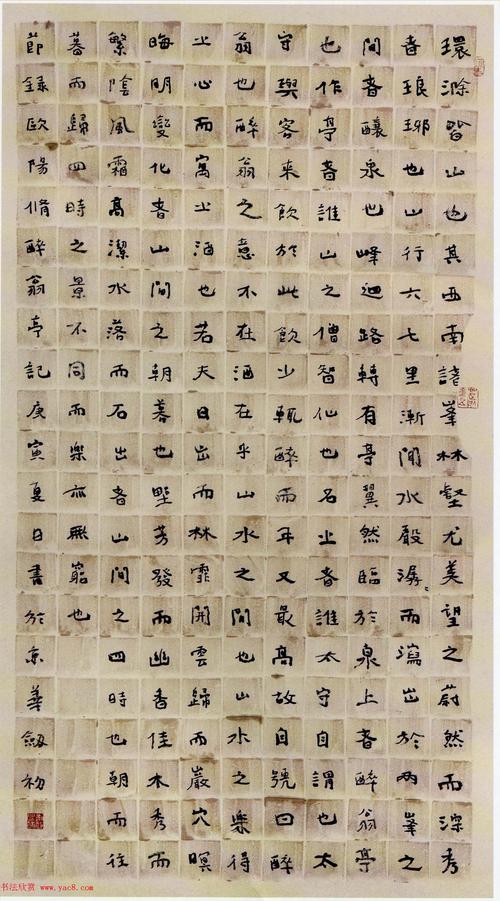 環滁皆山也其西南諸峯林壑尤美望之蔚然而深秀
者琅琊也山行六七里漸聞水聲潺〻而瀉出於兩峯之
間者釀泉也峰迴路轉有亭翼然臨於泉上者醉翁亭
也作亭者誰山之僧智仙也名之者誰太守自謂也太
守與客來飲於此飲少輒醉而年又最高故自號曰醉
翁也醉翁之意不在酒在乎山水之間也山水之樂得
之心而寓之酒也若夫日出而林霏開雲歸而巖穴暝
晦明變化者山間之朝暮也野芳發而幽香佳木秀而
繁陰風霜高潔水落而石出者山間之四時也朝而往
暮而歸四時之景不同而樂亦無窮也
節錄歐陽脩醉翁亭記庚寅夏日書於京華劍初
书法欣赏 www.yac8.com